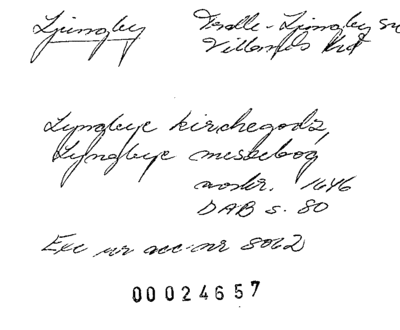 Ljungby Fralle-Ljungby sn
Villands hd
Lyngbye kirchegodz,
Lyngbye messebog
avskr. 1646
DAB s. 80
Exc ur acc-nr 8062
00024657